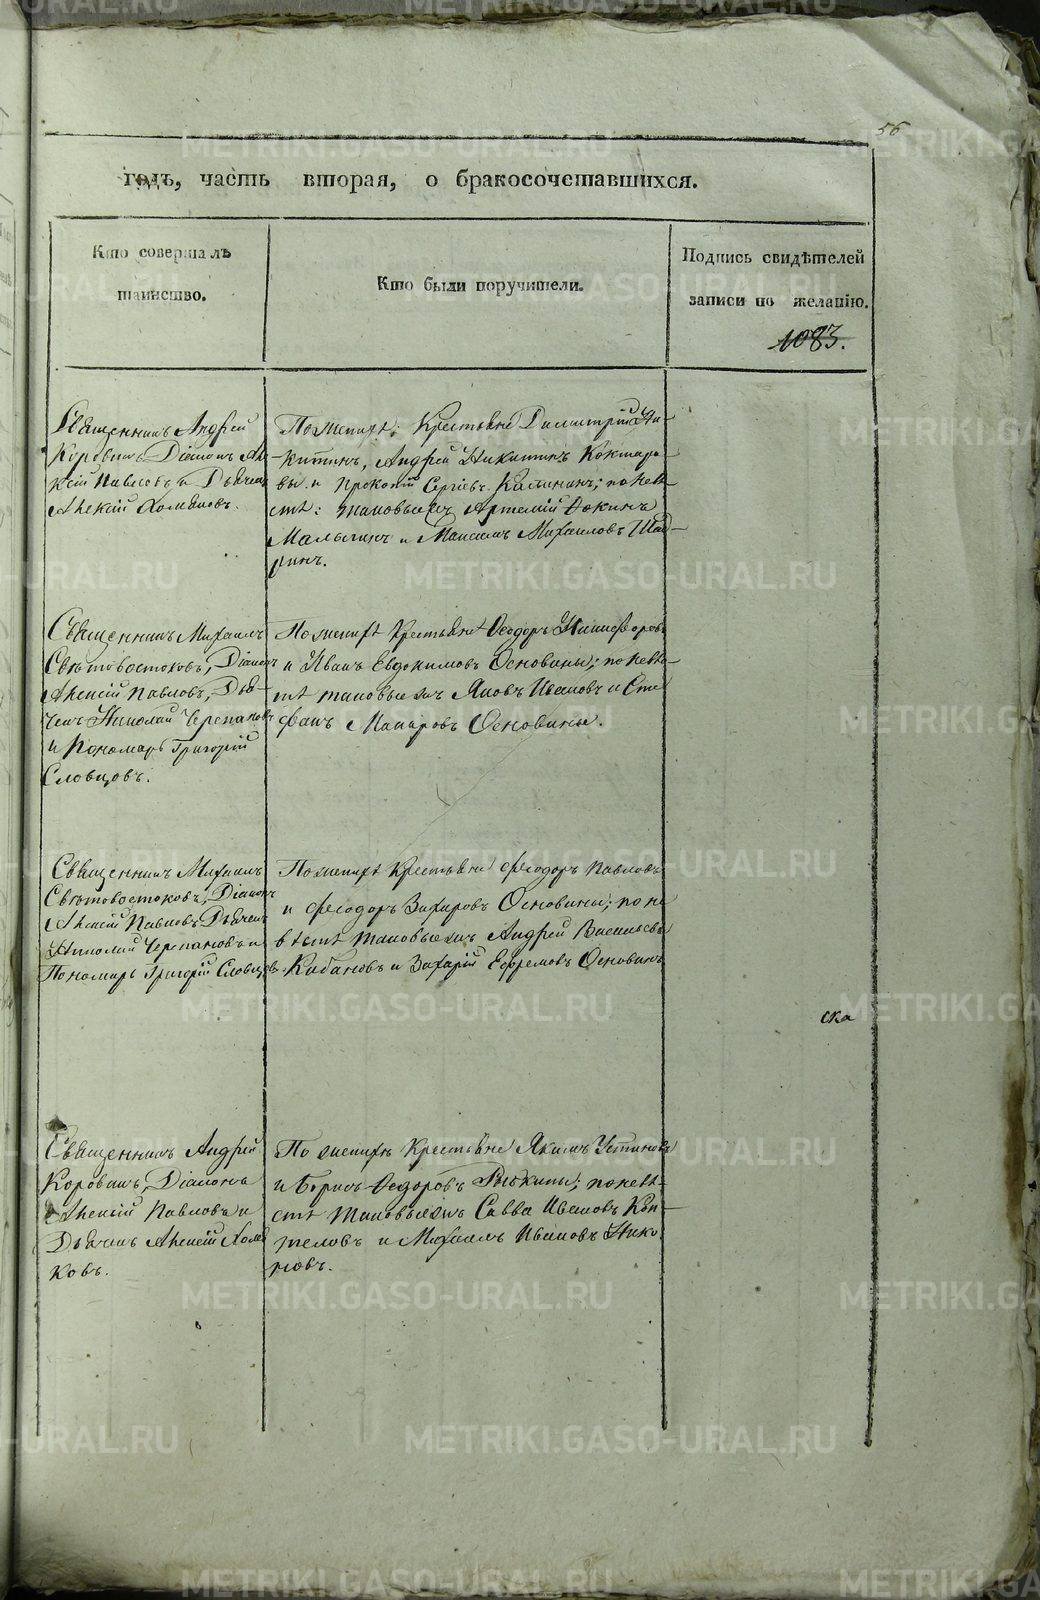 56
годъ, часть вторая, о бракосочетавшихся.
Кто совершалъ
таинство.
Кто были поручители.
Подпись свидѣтелей
записи по желанію.
1083.
Священникъ Андрей
Коровинъ, Діаконъ Але-
ксій Павловъ и Дьячекъ
Алексій Хомяковъ.
По женихѣ: Крестьяне Димитрій Ни-
китинъ, Андрей Никитинъ Коктаро-
вы и Прокопій Сергіевъ Калининъ; по невѣ-
стѣ: таковые жъ Артемій Фокинъ
Малыгинъ и Максимъ Михаиловъ Шад-
ринъ.
Священникъ Михаилъ
Свѣтовостоковъ, Діаконъ
Алексій Павловъ, Дья-
чекъ Николай Черепановъ
и Пономарь Григорій
Словцовъ.
По женихѣ Крестьяне Ѳеодоръ Никифоровъ
и Иванъ Евдокимовъ Основины; по невѣ-
стѣ таковые жъ Яковъ Ивановъ и Сте-
фанъ Макаровъ Основины.
Священникъ Михаилъ
Свѣтовостоковъ, Діаконъ
Алексій Павловъ, Дьячекъ
Николай Черепановъ и
Пономарь Григорій Словцовъ.
По женихѣ Крестьяне Феодоръ Павловъ
и Феодоръ Захаровъ Основины; по не
вѣстѣ таковые жъ Андрей Васильевъ
Кабановъ и Захарій Ефремовъ Основинъ
ска
Священникъ Андрей
Коровинъ, Діаконъ
Алексій Павловъ и
Дьячекъ Алексій Хомя
ковъ.
По женихѣ Крестьяне Якимъ Устиновъ
и Борисъ Ѳедоровъ Рычкины; по невѣ-
стѣ таковые жъ Савва Ивановъ Коп-
теловъ и Михаилъ Ивановъ Нико
новъ.
METRIKI.GASO-URAL.RU